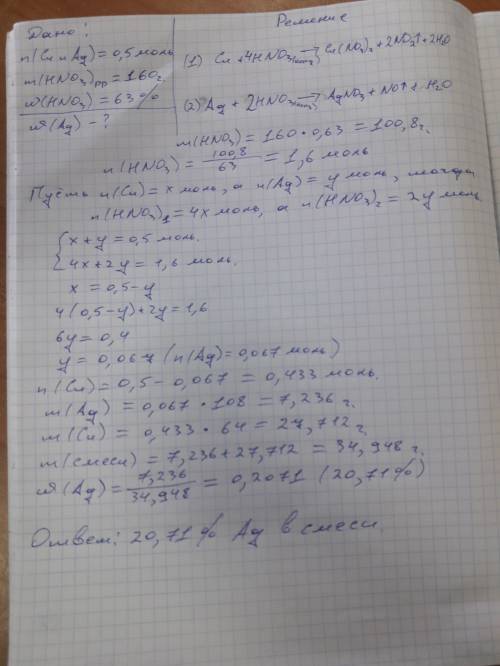 Дано: Решение
n(Cu и Ag) = 0,5 моль
m(HNO₃)рр = 160 г.
ω(HNO₃) = 63%
ω(Ag) - ?
(1) Cu + 4HNO₃(конц) → Cu(NO₃)₂ + 2NO₂↑ + 2H₂O
(2) Ag + 2HNO₃(конц) → AgNO₃ + NO↑ + H₂O
m(HNO₃) = 160 · 0,63 = 100,8 г.
n(HNO₃) = 100,8 / 63 = 1,6 моль
Пусть n(Cu) = x моль, а n(Ag) = y моль, тогда
n(HNO₃)₁ = 4x моль, а n(HNO₃)₂ = 2y моль
{ x + y = 0,5 моль.
4x + 2y = 1,6 моль.
x = 0,5 - y
4(0,5 - y) + 2y = 1,6
6y = 0,4
y = 0,067 (n(Ag) = 0,067 моль)
n(Cu) = 0,5 - 0,067 = 0,433 моль.
m(Ag) = 0,067 · 108 = 7,236 г.
m(Cu) = 0,433 · 64 = 27,712 г.
m(смеси) = 7,236 + 27,712 = 34,948 г.
ω(Ag) = 7,236 / 34,948 = 0,2071 (20,71%)
Ответ: 20,71% Ag в смеси.